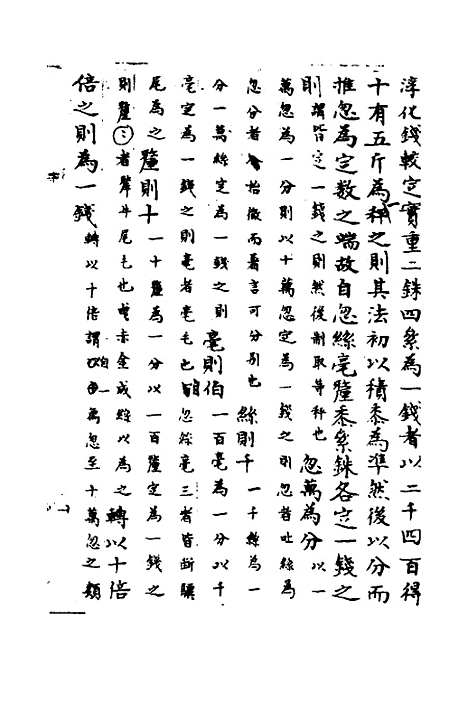 淳化錢較定實重二銖四絫為一錢者以二千四百得
十有五斤為一秤之則其法初以積黍為準然後以分而
推忽為定數之端故自忽絲毫釐黍絫銖各定一錢之
則謂皆定一錢之則然後制取等秤也忽萬為分以一
萬忽為一分則以十萬忽定為一錢之則忽昔吐絲為
忽分者始微而著言可分別也絲則千一千絲為一
分一萬絲定為一錢之則毫則伯一百毫為一分以千
毫定為一錢之則毫者毫毛也自忽絲毫三者皆斷驥
尾為之釐則十一十釐為一分以一百釐定為一錢之
則釐〻者犛牛尾毛也曳赤金成絲以為之轉以十倍
倍之則為一錢轉以十倍謂自一萬忽至十萬忽之類